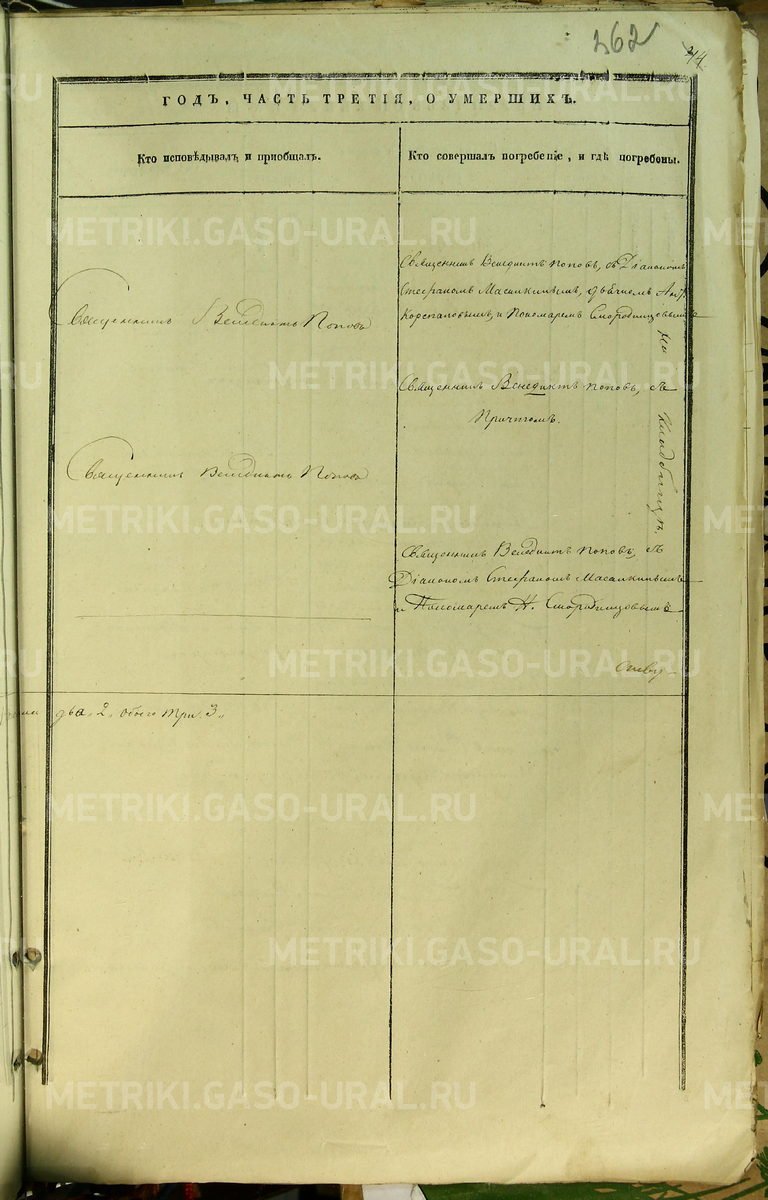 262
44
ГОДЪ, ЧАСТЬ ТРЕТІЯ, О УМЕРШИХЪ.
Кто исповѣдывалъ и пріобщалъ.
Кто совершалъ погребеніе, и гдѣ погребены.
Священникъ Венедиктъ Поповъ, съ Діакономъ
Стефаномъ Масалкинымъ, дьячкомъ
и Пономаремъ Смородинцовымъ
Священникъ Венедиктъ Поповъ
На Кладбищѣ.
Священникъ Венедиктъ Поповъ, съ
Причтомъ.
Священникъ Венедиктъ Поповъ
Священникъ Венедиктъ Поповъ, съ
Діакономъ Стефаномъ Масалкинымъ
и Пономаремъ Н. Смородинцовымъ
два 2, обоего три 3,
METRIKI.GASO-URAL.RU